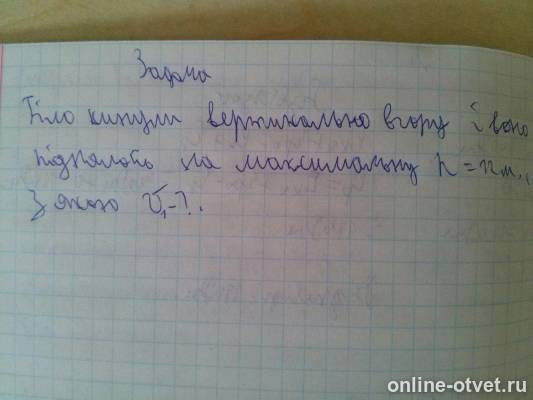 Задача
Тіло кинули вертикально вгору і воно
піднялось на максимальну h = n м.,
З якою V₁-?.
online-otvet.ru